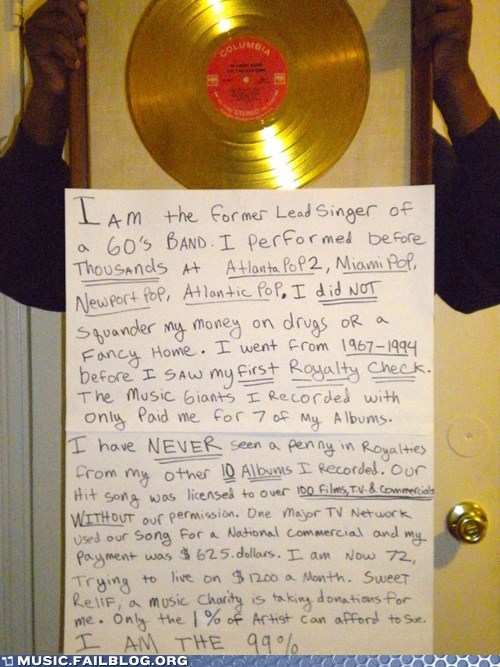 COLUMBIA
STEREO
I AM the former Lead Singer of
a 60's BAND. I performed before
THOUSANDS AT Atlanta POP 2, Miami POP,
Newport POP, Atlantic POP. I did NOT
Squander my money on drugs OR a
Fancy Home. I went from 1967-1994
before I SAW my first Royalty Check.
The Music Giants I Recorded with
only Paid me for 7 of My Albums.
I have NEVER seen a penny in Royalties
from my other 10 Albums I Recorded. Our
Hit song was licensed to over 100 Films, T.V. & Commercials
WITHOUT our permission. One Major TV Network
used our song for a National commercial and my
payment was $625. dollars. I am Now 72,
Trying to live on $1200 a Month. Sweet
Relief, a music Charity is taking donations for
me. Only the 1% of Artist can afford to Sue.
I AM THE 99%
MUSIC.FAILBLOG.ORG